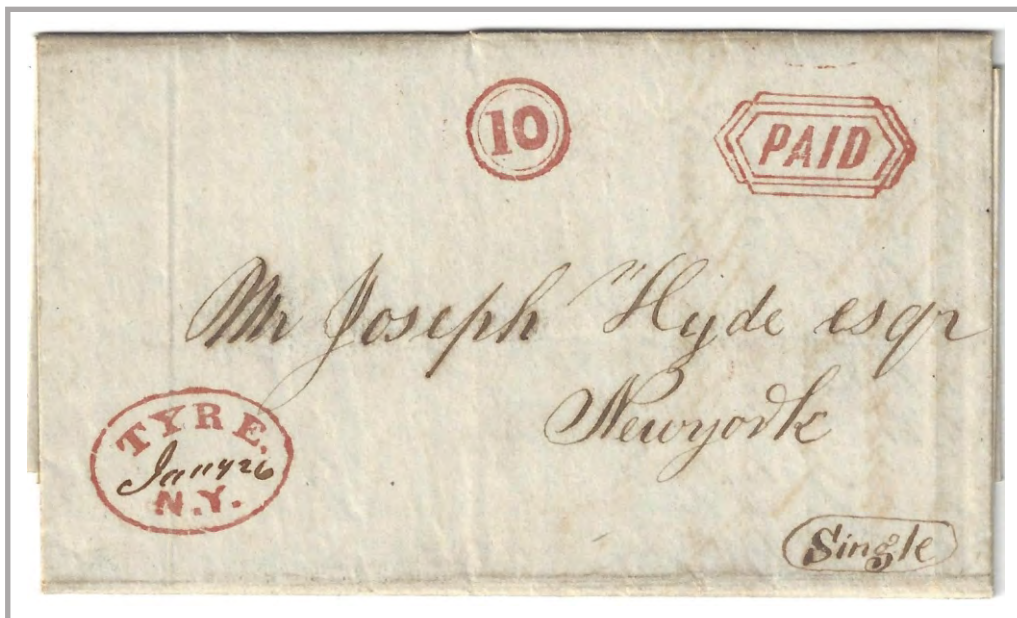 10
PAID
Mr Joseph Hyde esqr
Newyork
TYRE,
Jany 26
N.Y.
Single